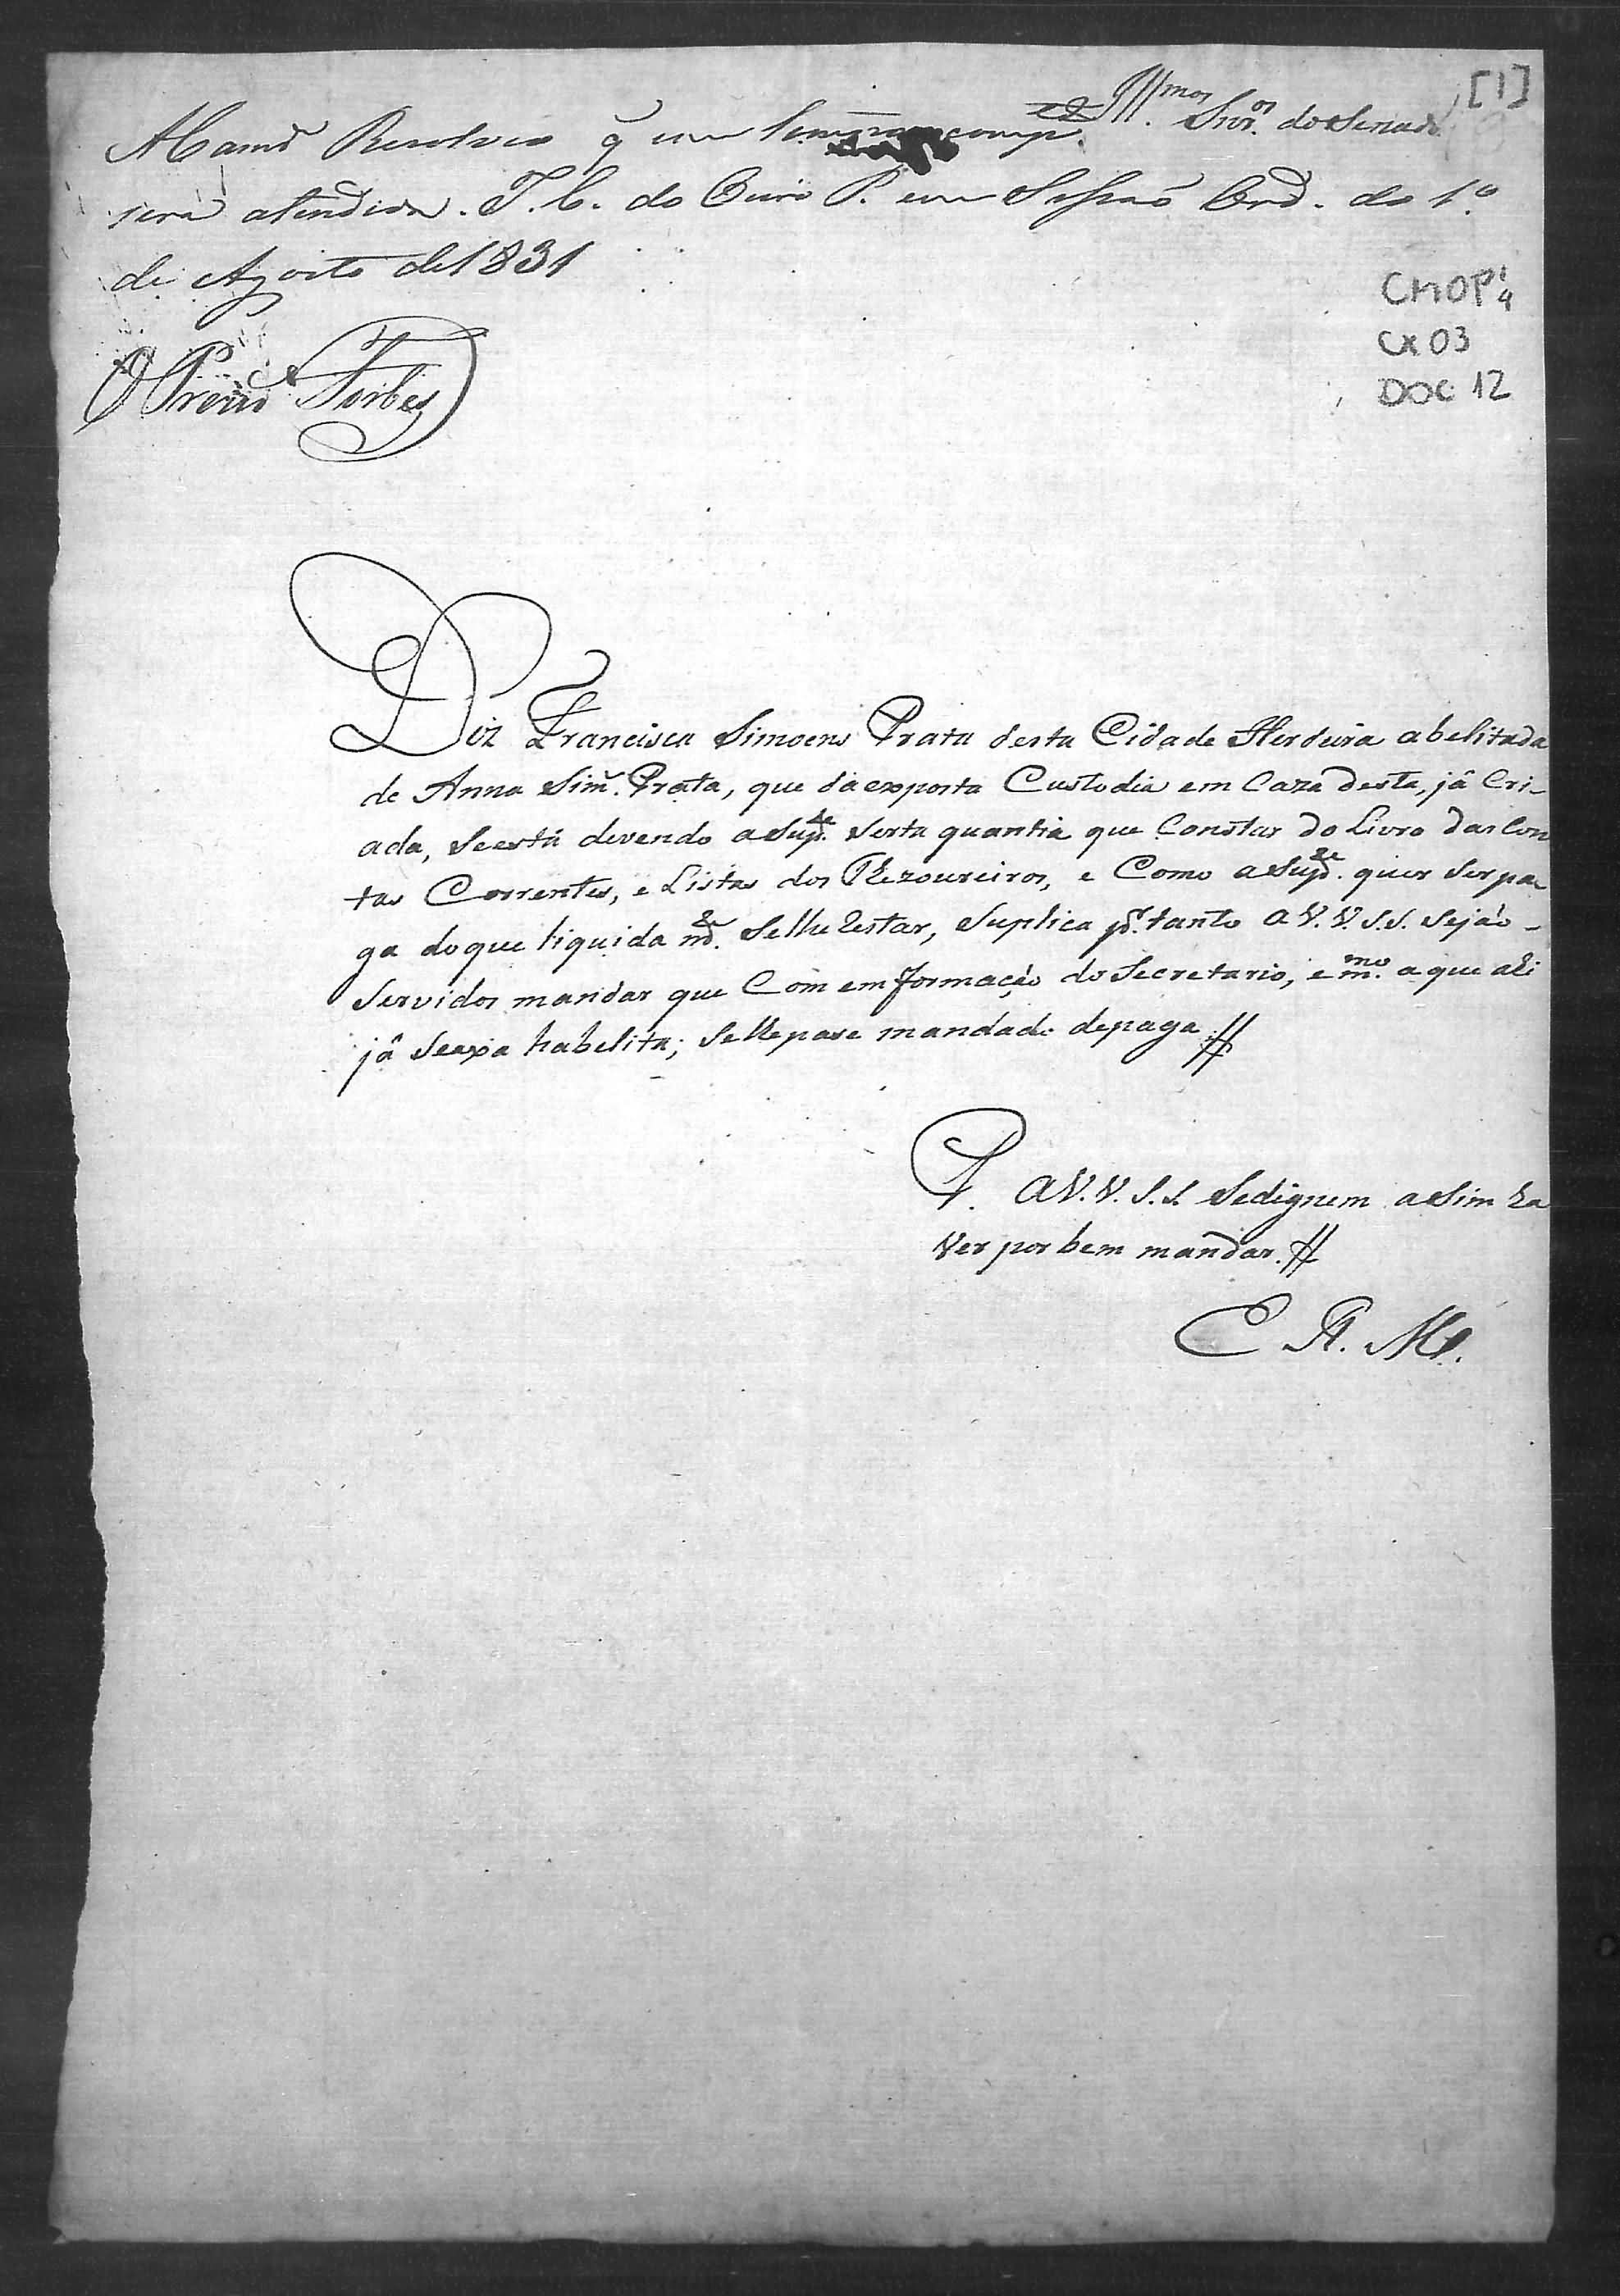 [1]
Ill.mos Snr.os do Senado
A Camr.ª Resolveo q̃ em comp.
será atendida. P. C. do Ouro P. em Sessaõ Ord. do 1.º
de Agosto de 1831
O Prezid.e Forbes
CMOP 1/4
CX 03
DOC 12
Diz Francisca Simoens Prata desta Cidade Herdeira abelitada
de Anna Sim. Prata, que da exposta Custodia em Caza desta, já Cri-
ada, Se está devendo a Sup.e Serta quantia que Constar do Livro das Con
tas Correntes, e Listas dos Thezoureiros, e Como a Sup.e quer Ser pa
ga do que liquida m.e Se lhe Restar, Suplica p.r tanto a V.V. S.S. Sejão
Servidos mandar que Com emformação do Secretario, e m.mo a que ali
já Seaxa habelita; Se lle pase mandado de paga //
P. a V.V. S.S. Sedignem aSim ha
ver por bem mandar. //
E R. M.